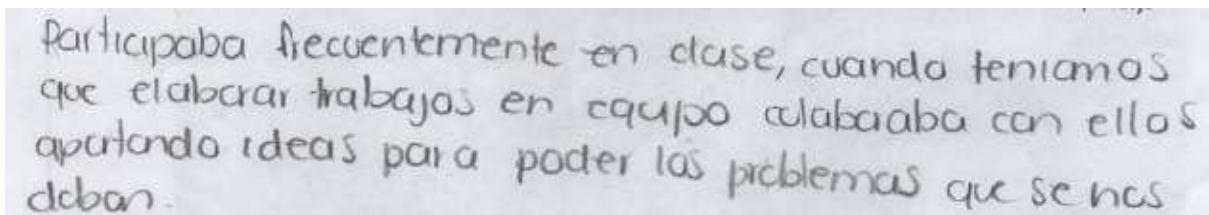 Participaba frecuentemente en clase, cuando teniamos
que elaborar trabajos en equipo colaboraba con ellos
aportando ideas para poder los problemas que se nos
daban.